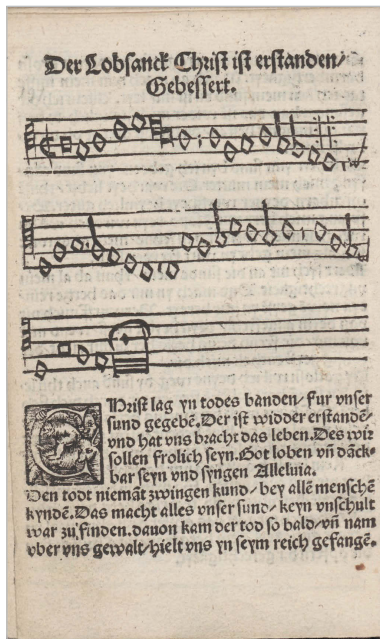 Der Lobsanck Christ ist erstanden/
Gebessert.
CHrist lag yn todes banden/ fur vnser
sund gegebē. Der ist widder erstandē/
vnd hat vns bracht das leben. Des wir
sollen frolich seyn. Got loben vn̄ danck-
bar seyn vnd syngen Alleluia.
Den todt niemāt zwingen kund/ bey allē menschē
kyndē. Das macht alles vnser sund/ keyn vnschult
war zu finden. dauon kam der tod so bald/ vn̄ nam
vber vns gewalt/ hielt vns yn seym reich gefangē.